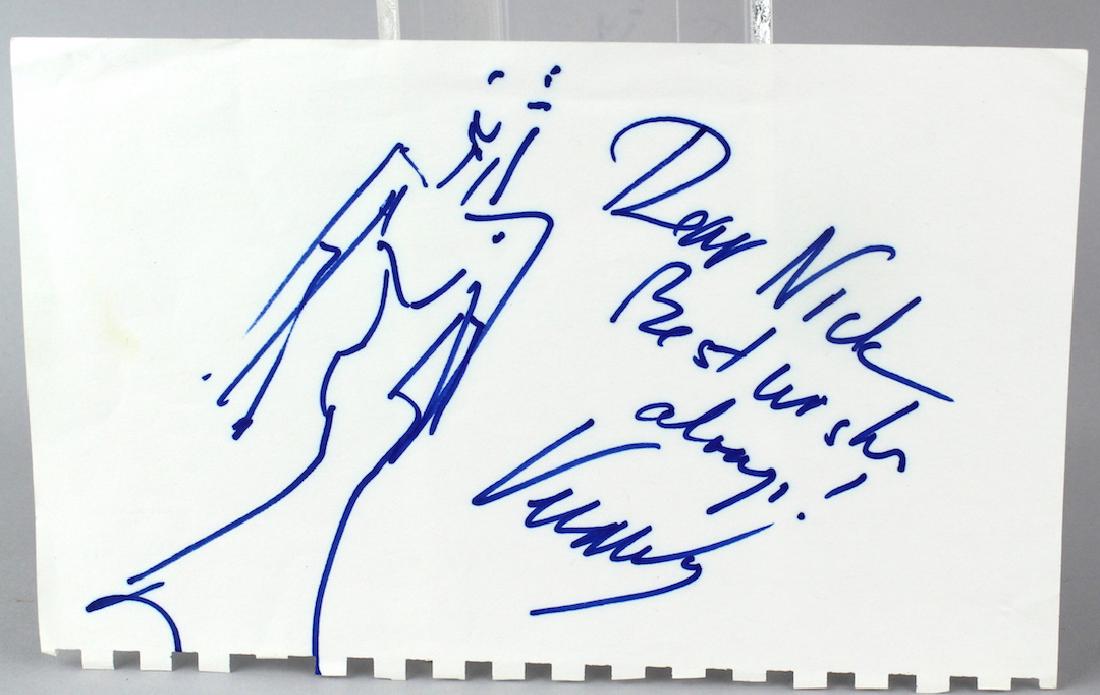 Dear Nick
Best wishes
always!